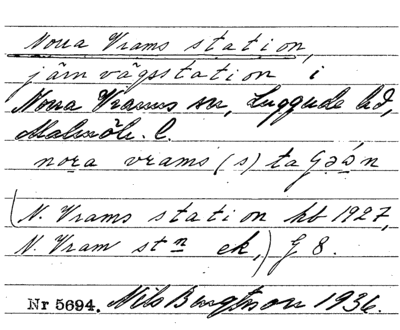 Norra Vrams station,
järnvägsstation i
Norra Vrams sn, Luggude hd,
Malmöh. l.
nora vrams (s) taʃɷ́n
(N. Vrams station kb 1927,
N. Vram stn ek,) G 8.
Nr 5694. Nils Bengtsson 1936.